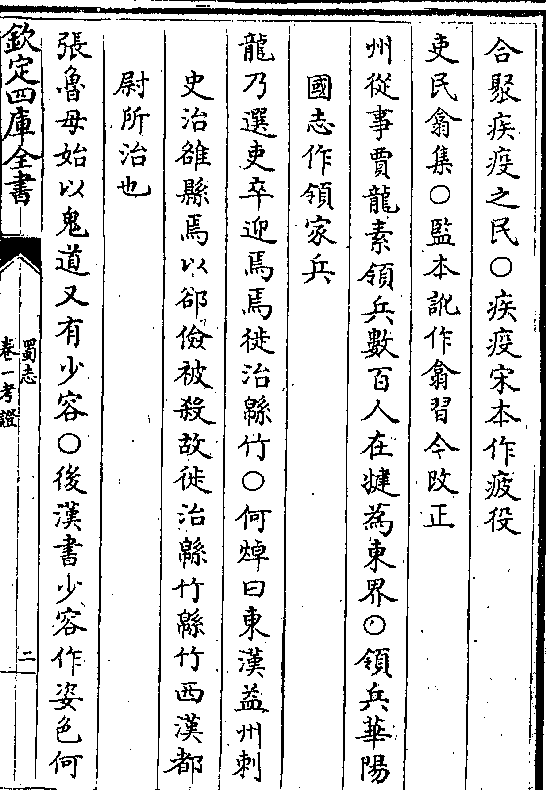 合聚疾疫之民〇疾疫宋本作疲役
吏民翕集〇監本訛作翕習今改正
州從事賈龍素領兵數百人在犍為東界〇領兵華陽
國志作領家兵
龍乃選吏卒迎焉焉徙治緜竹〇何焯曰東漢益州刺
史治雒縣焉以郤儉被殺故徙治緜竹緜竹西漢都
尉所治也
張魯母始以鬼道又有少容〇後漢書少容作姿色何
欽定四庫全書
蜀志
卷一考證
二